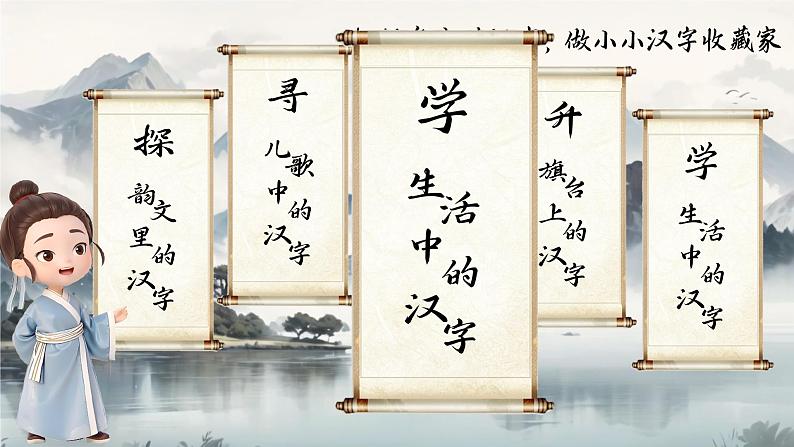 ，做小小汉字收藏家
探
韵文里的汉字
寻
儿歌中的汉字
学
生活中的汉字
升
旗台上的汉字
学
生活中的汉字